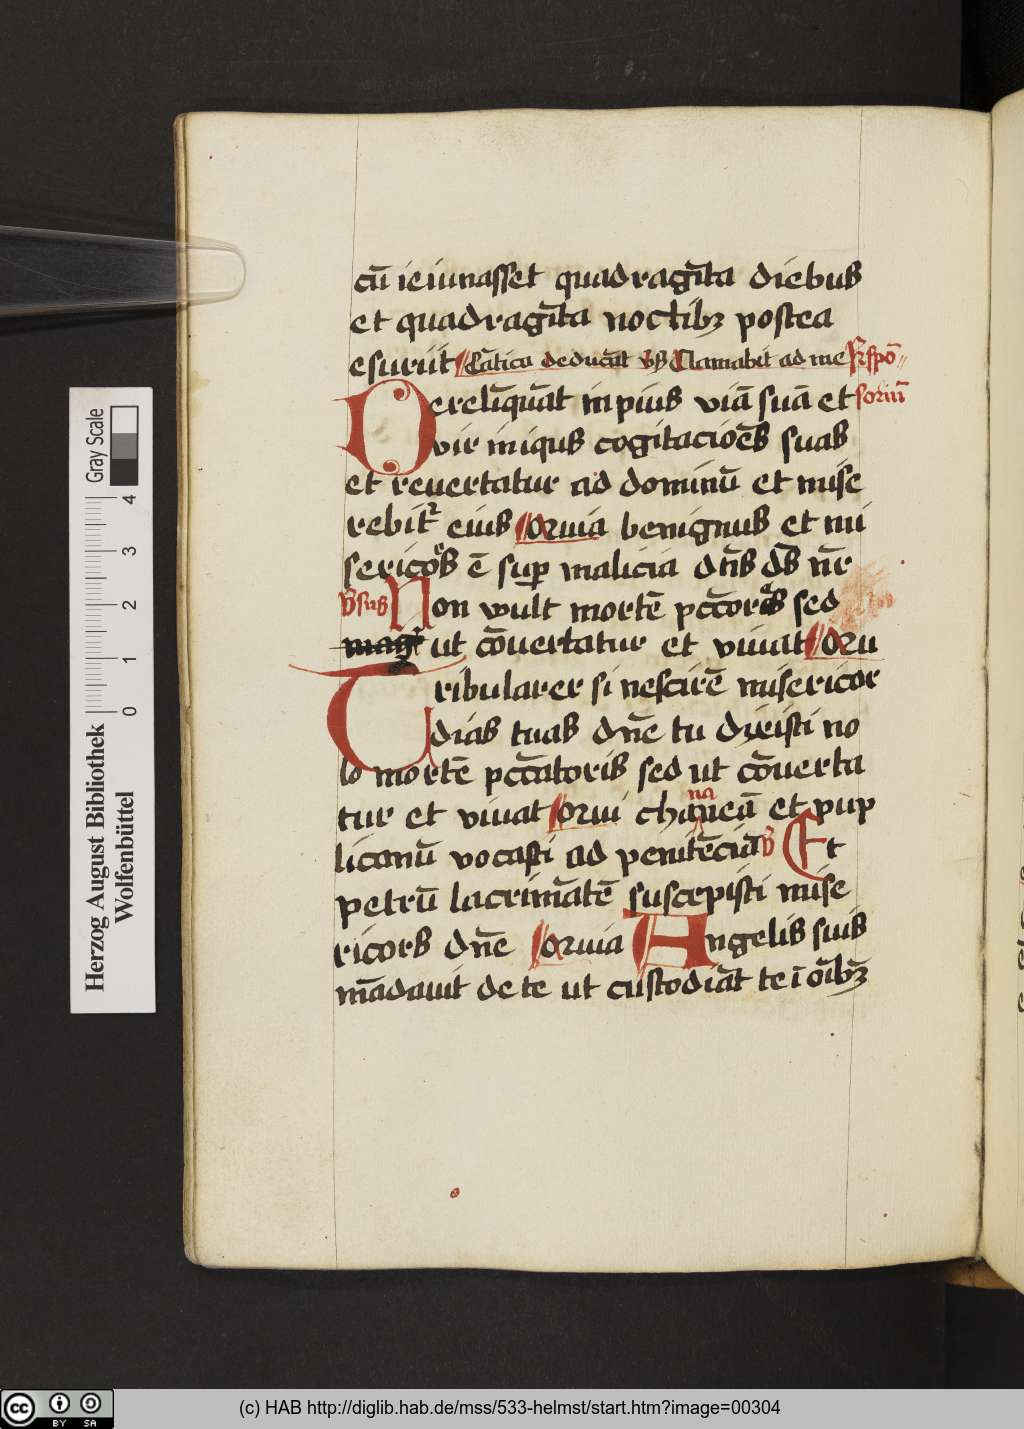 cū ieiunasset quadragīta diebus
et quadragīta noctibꝫ postea
esuriit Cātica deducāt vs Clamabit ad me Rſpō
Derelīquāt inpius viā suā et soriū
vir iniqus cogitacioēs suas
et reuertatur ad dominū et mise
rebitᷣ eius Qruia benignus et mi
sericors ē sup malicia dn̄s ds̄ nr̄
v̄sus Non wult mortē pccoris sed
magꝭ ut cōuertatur et viuat Qru
Tribularer si nescirē misericor
dias tuas dn̄e tu dixisti no
lo mortē pccātoris sed ut cōuerta
tur et viuat Qrui chananeā et pup
licanū vocasti ad penitēciā v̄ Et
petrū lacrimātē suscepisti mise
ricors dn̄e Qruia Angelis suis
mādauit de te ut custodiāt te ī oībꝫ
Gray Scale
4
3
2
1
0
Herzog August Bibliothek
Wolfenbüttel
cc BY SA
(c) HAB http://diglib.hab.de/mss/533-helmst/start.htm?image=00304